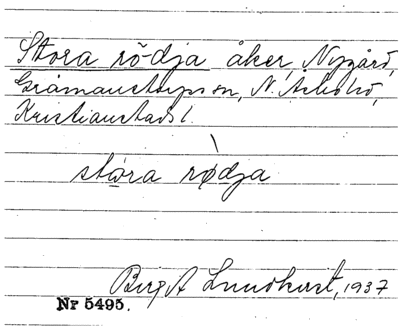 Stora rödja åker, Nygård,
Gråmanstorps sn, N. Åsbohd,
Kristianstads l.
stora rødja
Birgit Lundkvist, 1937
Nr 5495.